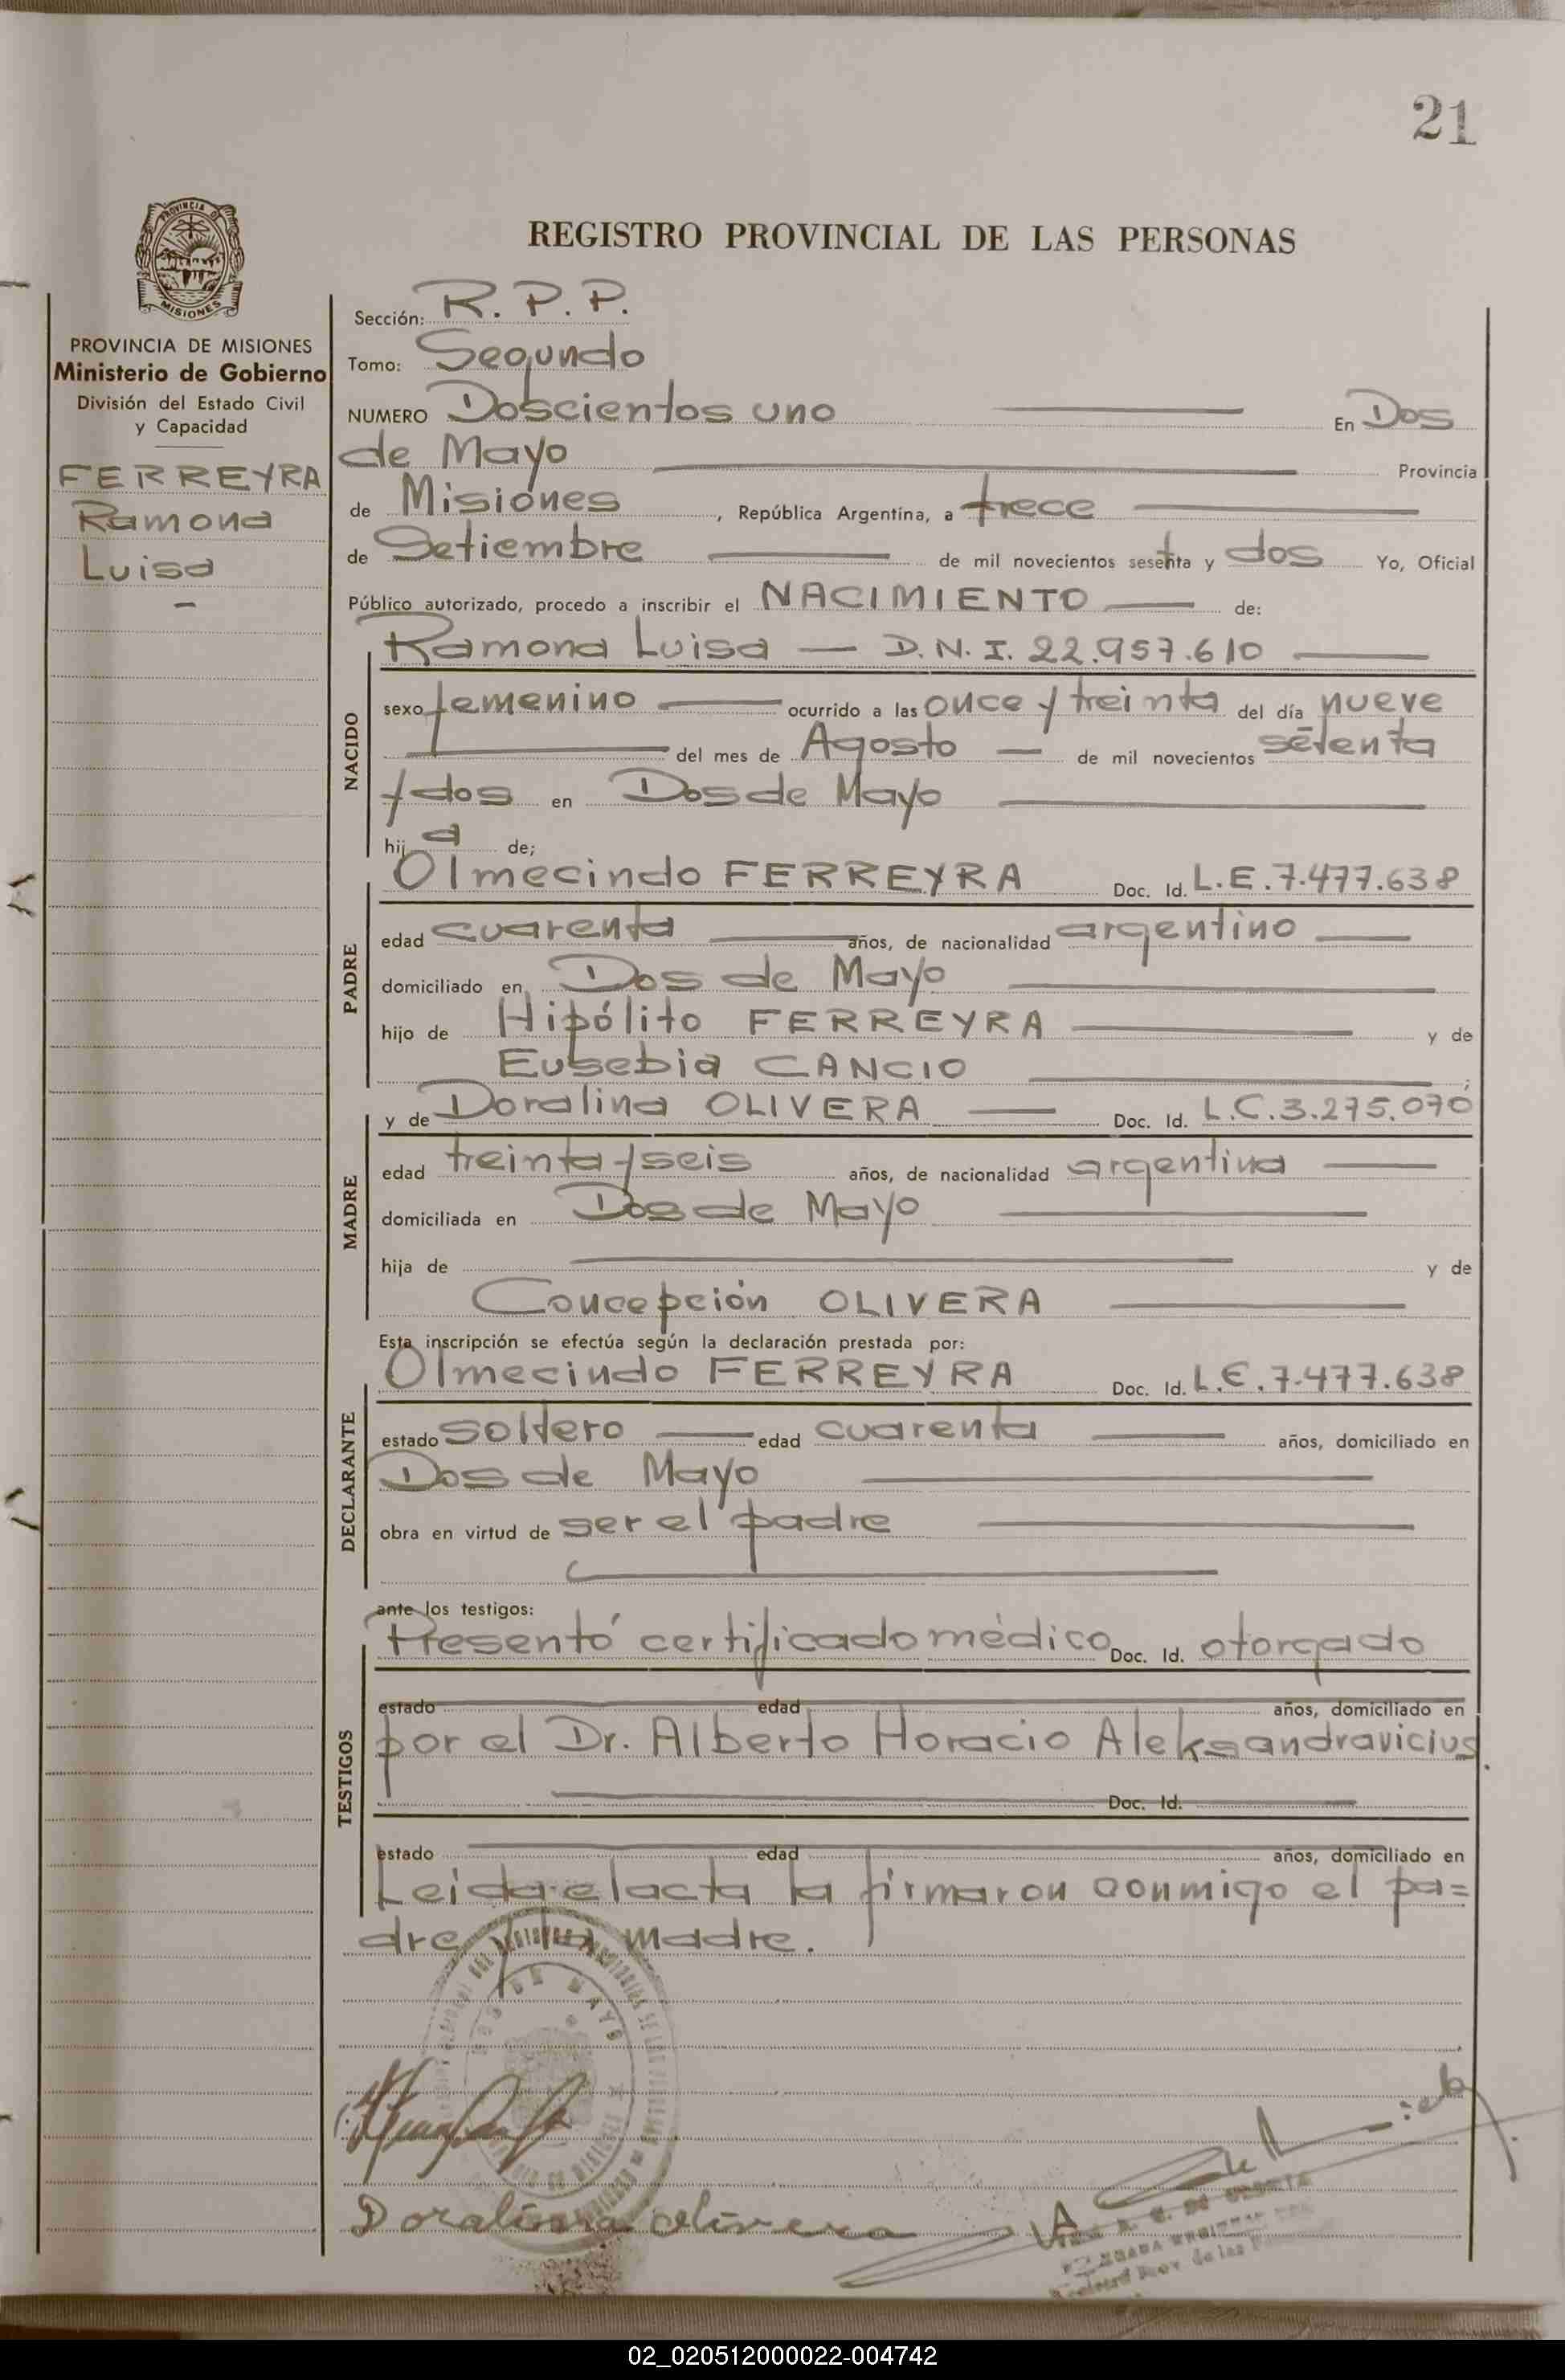 21
PROVINCIA DE
MISIONES
REGISTRO PROVINCIAL DE LAS PERSONAS
PROVINCIA DE MISIONES
Ministerio de Gobierno
División del Estado Civil
y Capacidad
FERREYRA
Ramona
Luisa
Sección: R. P. P.
Tomo: Segundo
NUMERO Doscientos uno En Dos
de Mayo Provincia
de Misiones, República Argentina, a trece
de Setiembre de mil novecientos sesenta y dos Yo, Oficial
Público autorizado, procedo a inscribir el NACIMIENTO de:
Ramona Luisa — D.N.I. 22.957.610
NACIDO
sexo femenino ocurrido a las once y treinta del día nueve
del mes de Agosto — de mil novecientos setenta
y dos en Dos de Mayo
hija de;
Olmecindo FERREYRA Doc. Id. L.E. 7.477.638
PADRE
edad cuarenta años, de nacionalidad argentino
domiciliado en Dos de Mayo
hijo de Hipólito FERREYRA y de
Eusebia CANCIO ;
y de Doralina OLIVERA Doc. Id. L.C. 3.275.070
MADRE
edad treinta y seis años, de nacionalidad argentina
domiciliada en Dos de Mayo
hija de y de
Concepción OLIVERA
Esta inscripción se efectúa según la declaración prestada por:
Olmecindo FERREYRA Doc. Id. L.E. 7.477.638
DECLARANTE
estado soltero edad cuarenta años, domiciliado en
Dos de Mayo
obra en virtud de ser el padre
ante los testigos:
Presentó certificado médico Doc. Id. otorgado
TESTIGOS
estado edad años, domiciliado en
por el Dr. Alberto Horacio Aleksandravicius.
Doc. Id.
estado edad años, domiciliado en
Leida el acta la firmaron conmigo el pa=
dre y la madre.
DOS DE MAYO
Doralina Olivera
02_020512000022-004742